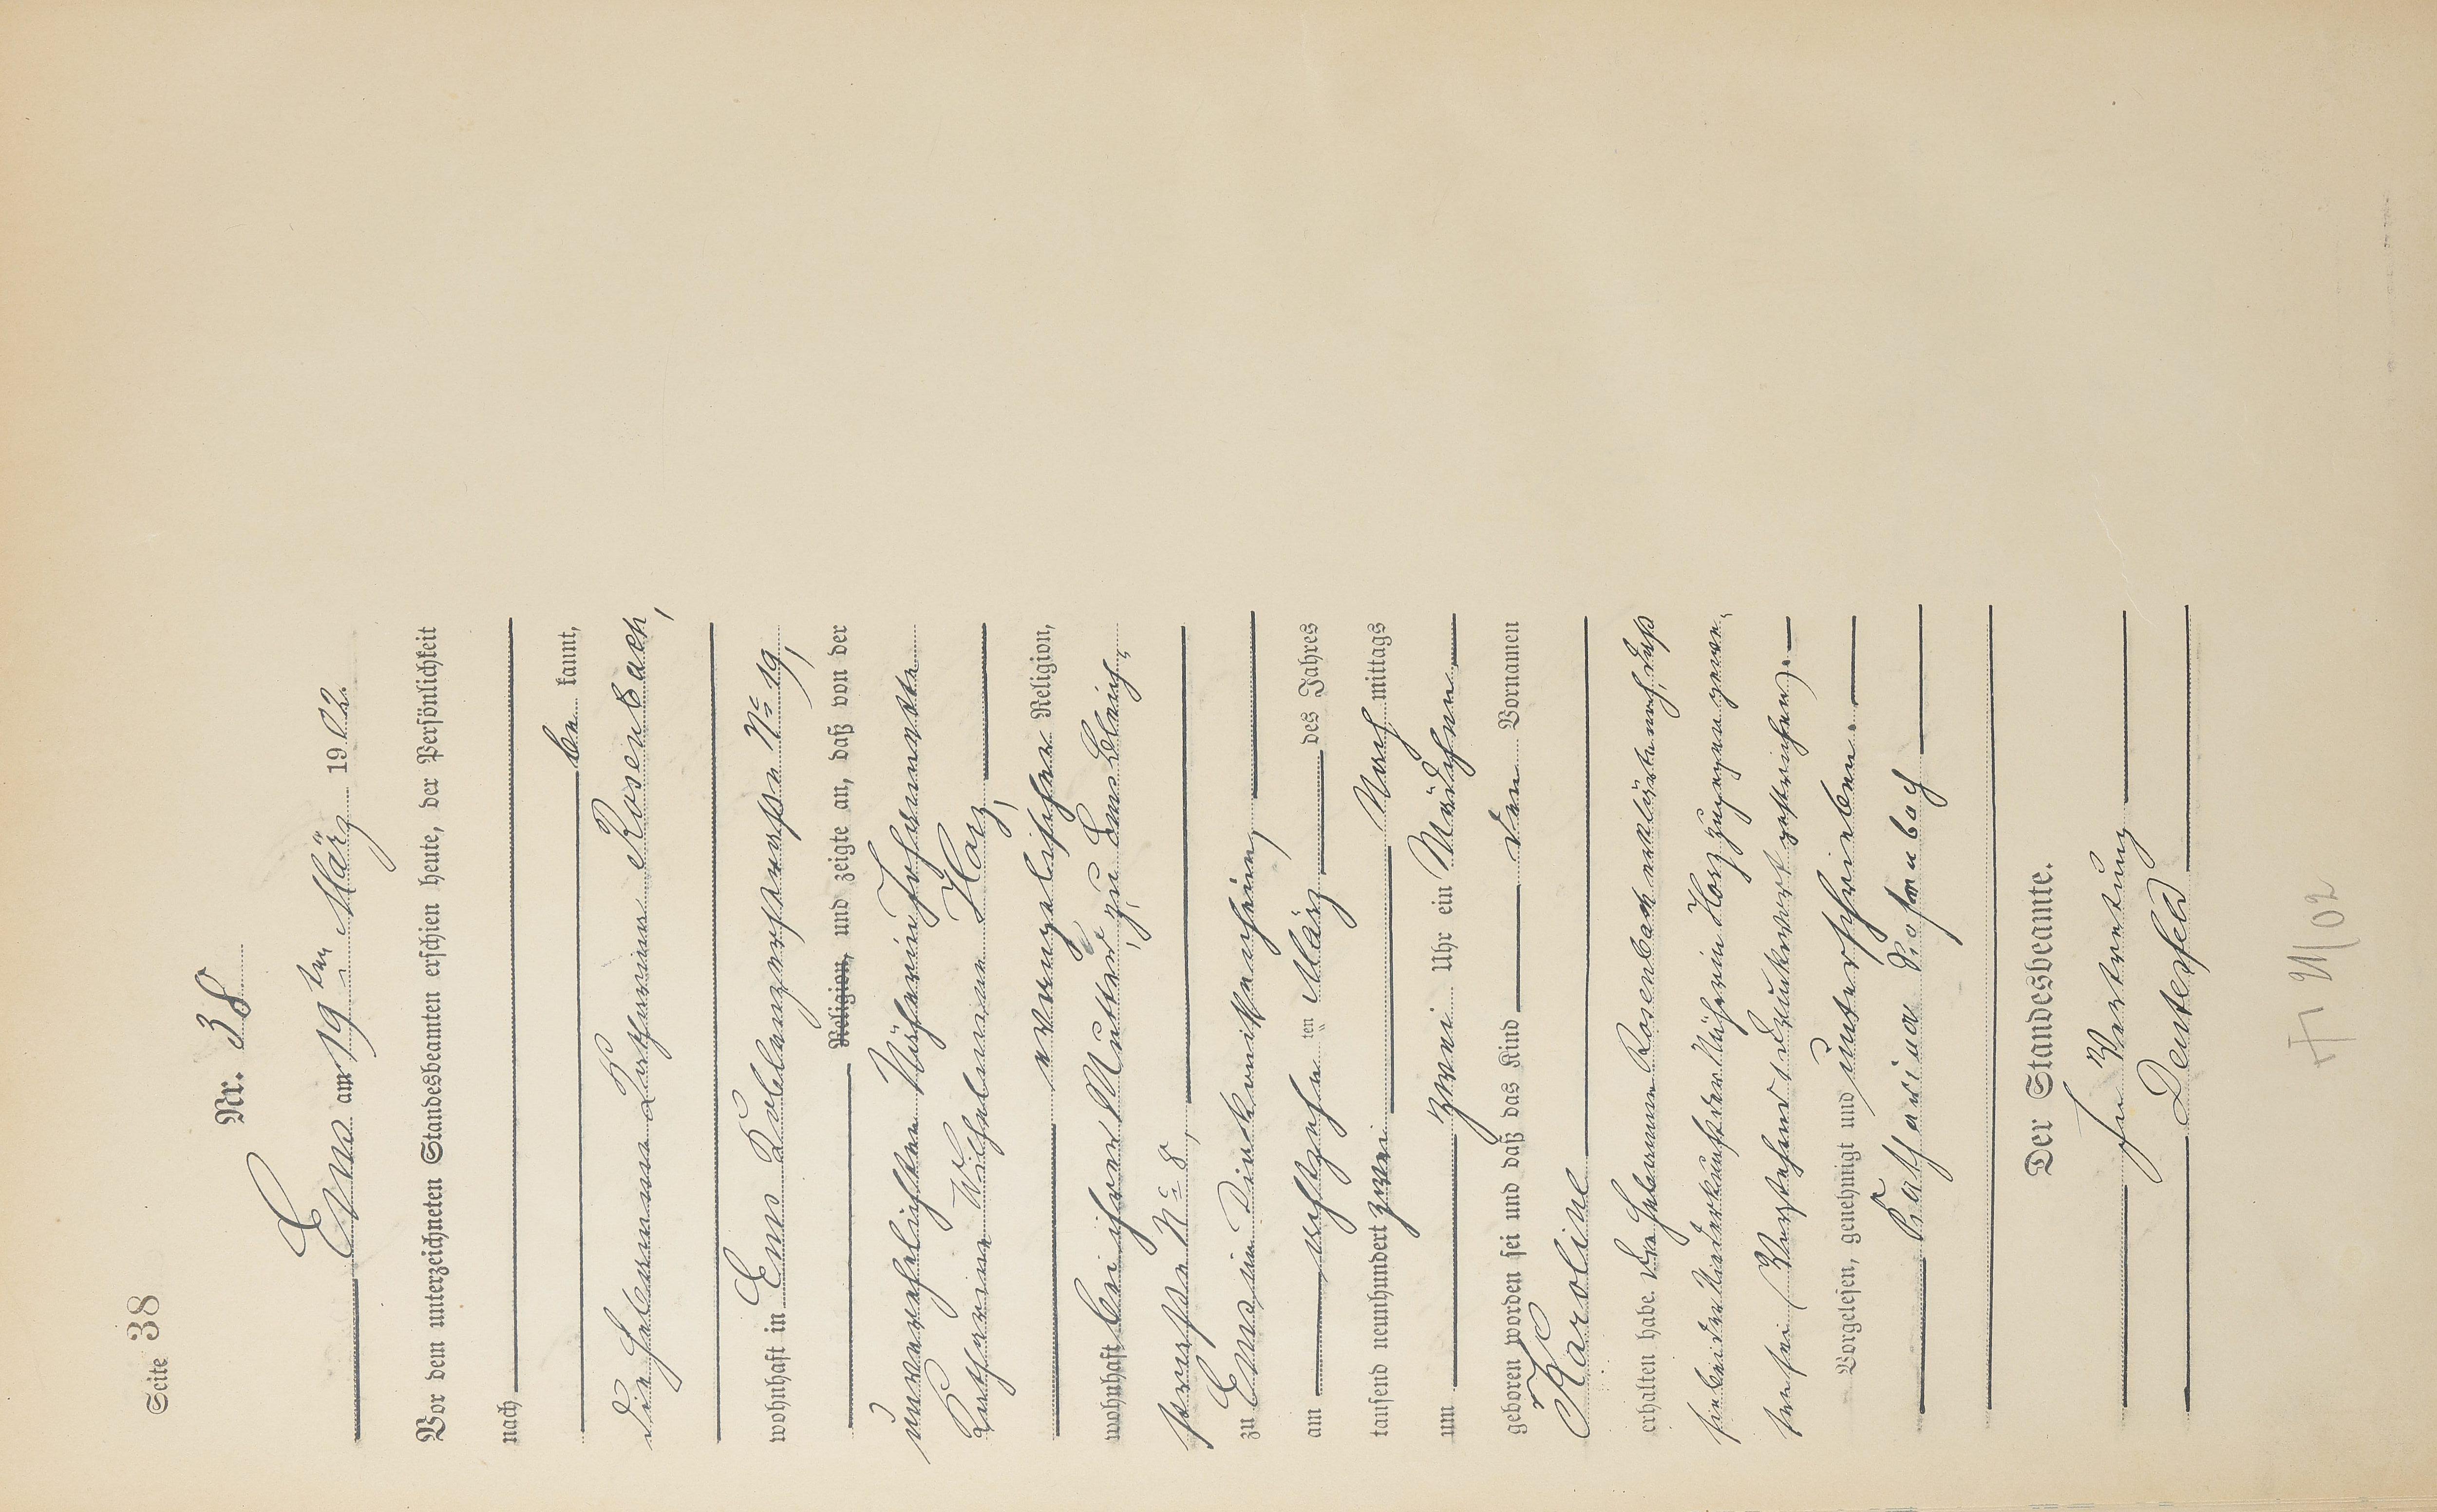 Seite 38
Nr. 38
Ems am 19ten März 1902.
Vor dem unterzeichneten Standesbeamten erschien heute, der Persönlichkeit
nach
be kannt,
die Hebamme Katharina Rosenbach,
wohnhaft in Ems Koblenzerstrasse No 19,
Religion, und zeigte an, daß von der
unverehelichten Näherin Johannette
Katharine Wilhelmine Horz,
evangelischer Religion,
wohnhaft bei ihrer Mutter zu Ems Bleich-
strasse No 8,
zu Ems im Diakonissenheim,
am achtzehn ten März des Jahres
tausend neunhundert zwei Nach mittags
um zwei Uhr ein Mädchen
geboren worden sei und daß das Kind den Vornamen
Karoline
erhalten habe. Die Hebamme Rosenbach erklärte noch, daß
sie bei der Niederkunft der Näherin Horz zugegen gewe-
sen sei (Vorstehend 1 Druckwort gestrichen).
Vorgelesen, genehmigt und unterschrieben.
Katharina Rosenbach
Der Standesbeamte.
In Vertretung
Deutesfeld
21/02